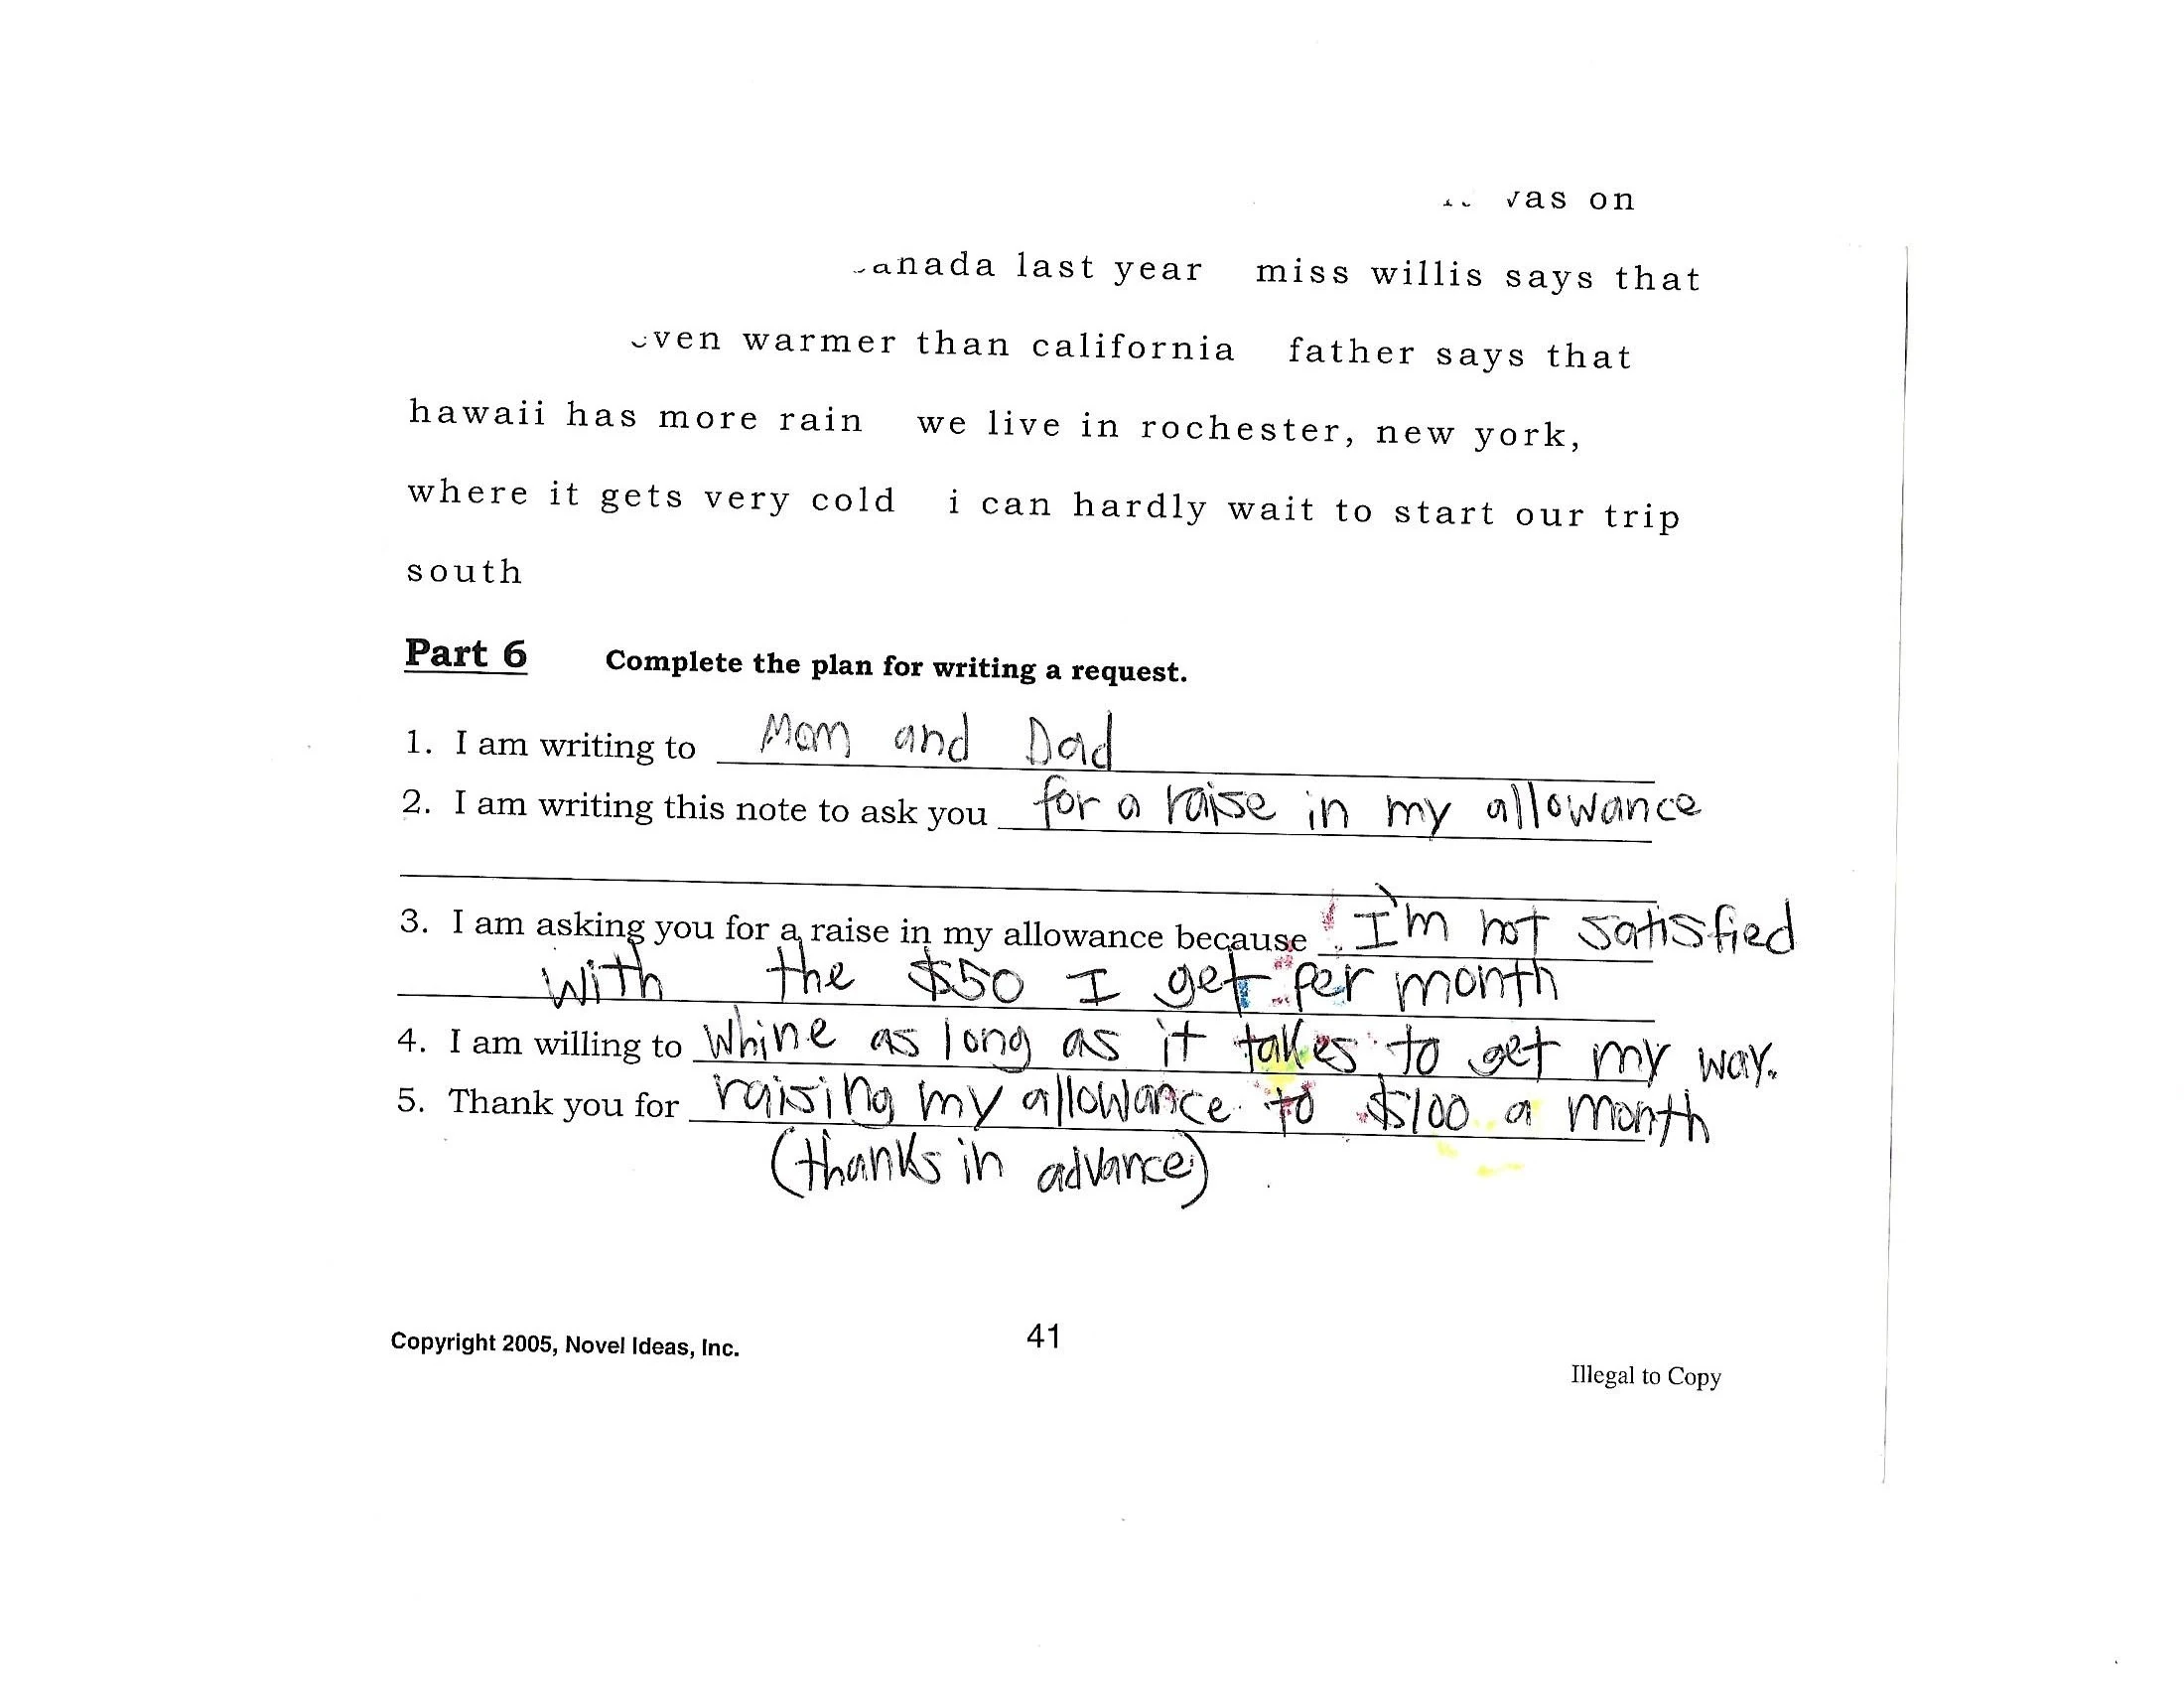 on
last year miss willis says that
warmer than california father says that
hawaii has more rain we live in rochester, new york,
where it gets very cold i can hardly wait to start our trip
south
Part 6 Complete the plan for writing a request.
1. I am writing to Mom and Dad
2. I am writing this note to ask you for a raise in my allowance
3. I am asking you for a raise in my allowance because I'm not satisfied
with the $50 I get per month
4. I am willing to whine as long as it takes to get my way.
5. Thank you for raising my allowance to $100 a month
(thanks in advance)
Copyright 2005, Novel Ideas, Inc. 41
Illegal to Copy